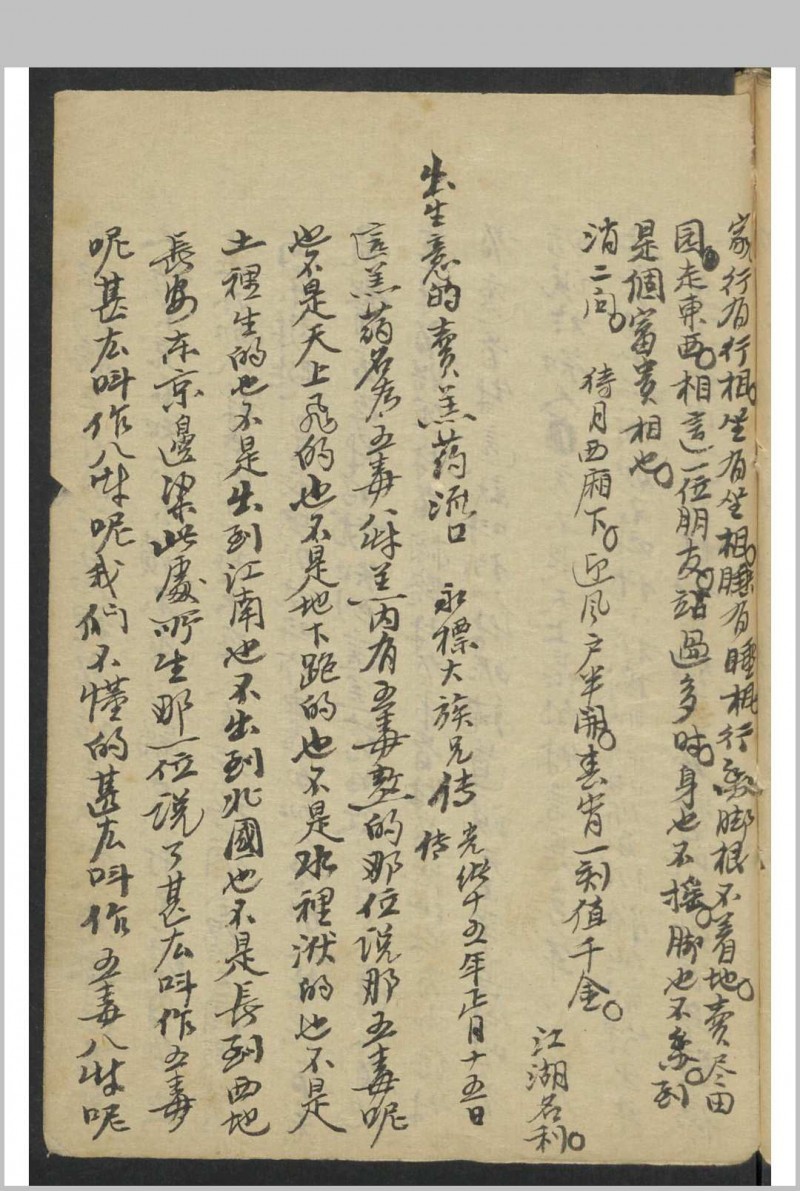 家行有行相坐有坐相睡有睡相行路脚根不着地賣尽田
园走東西相這一位朋友站過多时身也不摇脚也不乱到
是個富貴相也
消二向 待月西廂下迎风户半開春宵一刻值千金
江湖名利
出生意的賣羔药流口 永標大族兄传 光緒十五年正月十五日
传
這羔葯名為五毒八咔羔内有五毒熬的那位说那五毒呢
也不是天上飛的也不是地下跑的也不是水裡洑的也不是
土裡生的也不是出到江南也不出到北國也不是長到西地
長安东京邊梁此處所生那一位说了甚広叫作五毒
呢甚広叫作八咔呢我们不懂的甚広叫作五毒八咔呢